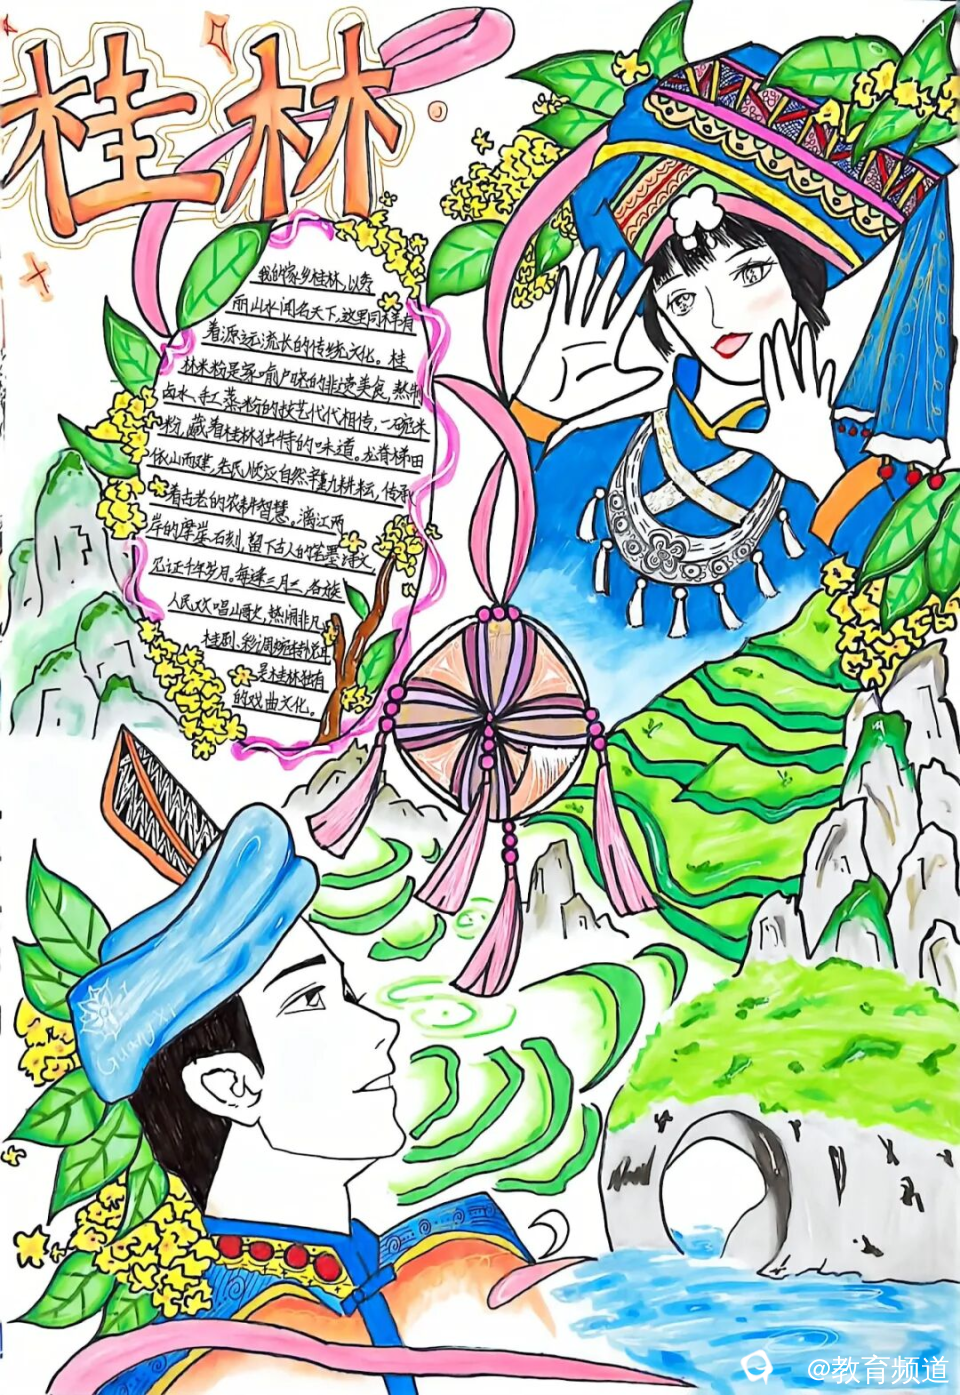 桂林
我的家乡桂林,以秀
丽山水闻名天下,这里同样有
着源远流长的传统文化。桂
林米粉是家喻户晓的非遗美食,熬制
卤水、手工菜粉的技艺代代相传,一碗米
粉,藏着桂林独特的味道。龙脊梯田
依山而建,先民顺应自然辛勤耕耘,传承
着古老的农耕智慧。漓江两
岸的摩崖石刻,留下古人的笔墨诗文,
见证千年岁月。每逢三月三,各族
人民欢唱山歌,热闹非凡
桂剧、彩调婉转悦耳
是桂林独有
的戏曲文化。
Guang xi
@教育频道